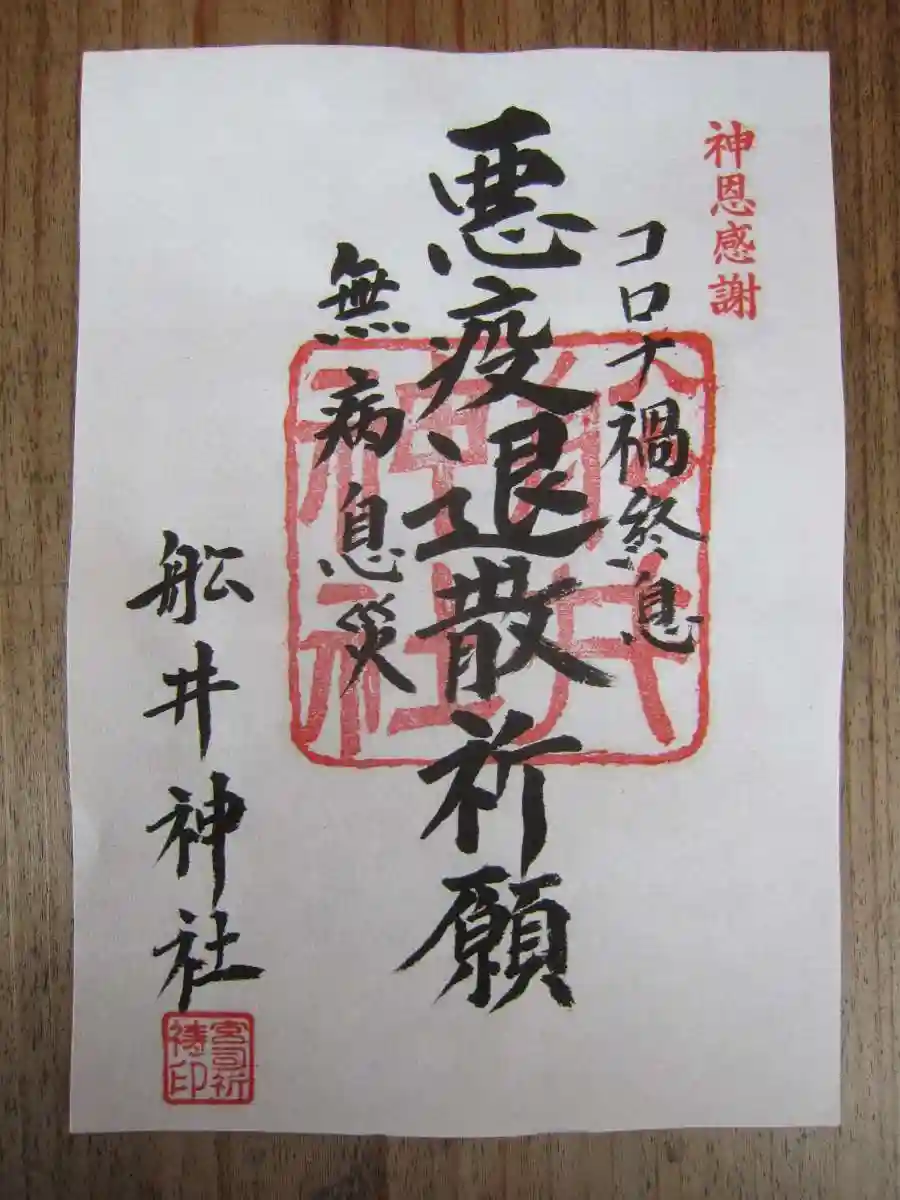 神恩感謝
コロナ禍終息
悪疫退散祈願
無病息災
舩井神社
舩井
神社
宮司祈
祷印